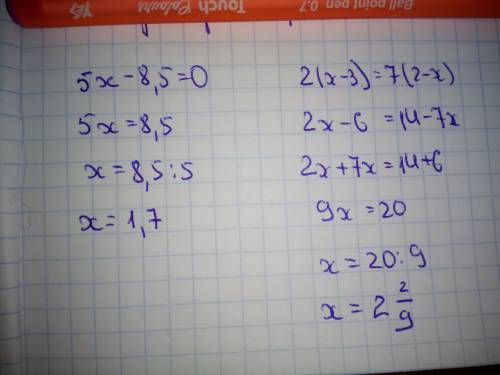 Ball point pen 0.7 Touch Colours YES
5x - 8,5 = 0
5x = 8,5
x = 8,5 : 5
x = 1,7
2(x-3) = 7(2-x)
2x - 6 = 14 - 7x
2x + 7x = 14 + 6
9x = 20
x = 20 : 9
x = 2 2/9